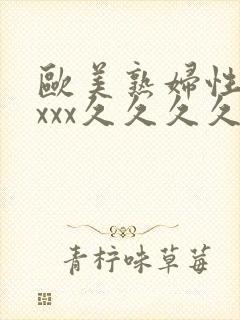 歐美熟婦性
xxx久久久久
青柠味草莓